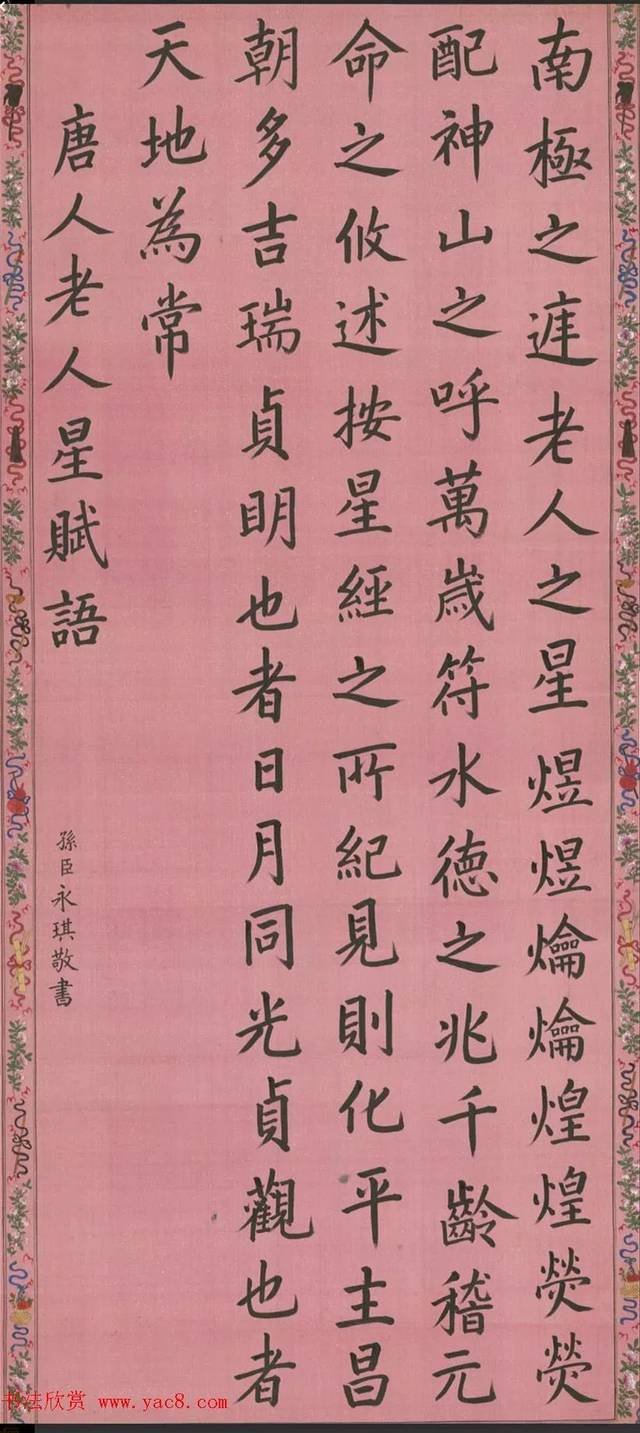 南極之漄老人之星煜煜爚爚煌煌熒熒
配神山之呼萬歲符水德之兆千齡稽元
命之攸述按星經之所紀見則化平主昌
朝多吉瑞貞明也者日月同光貞觀也者
天地為常
唐人老人星賦語
孫臣永琪敬書
书法欣赏 www.yac8.com